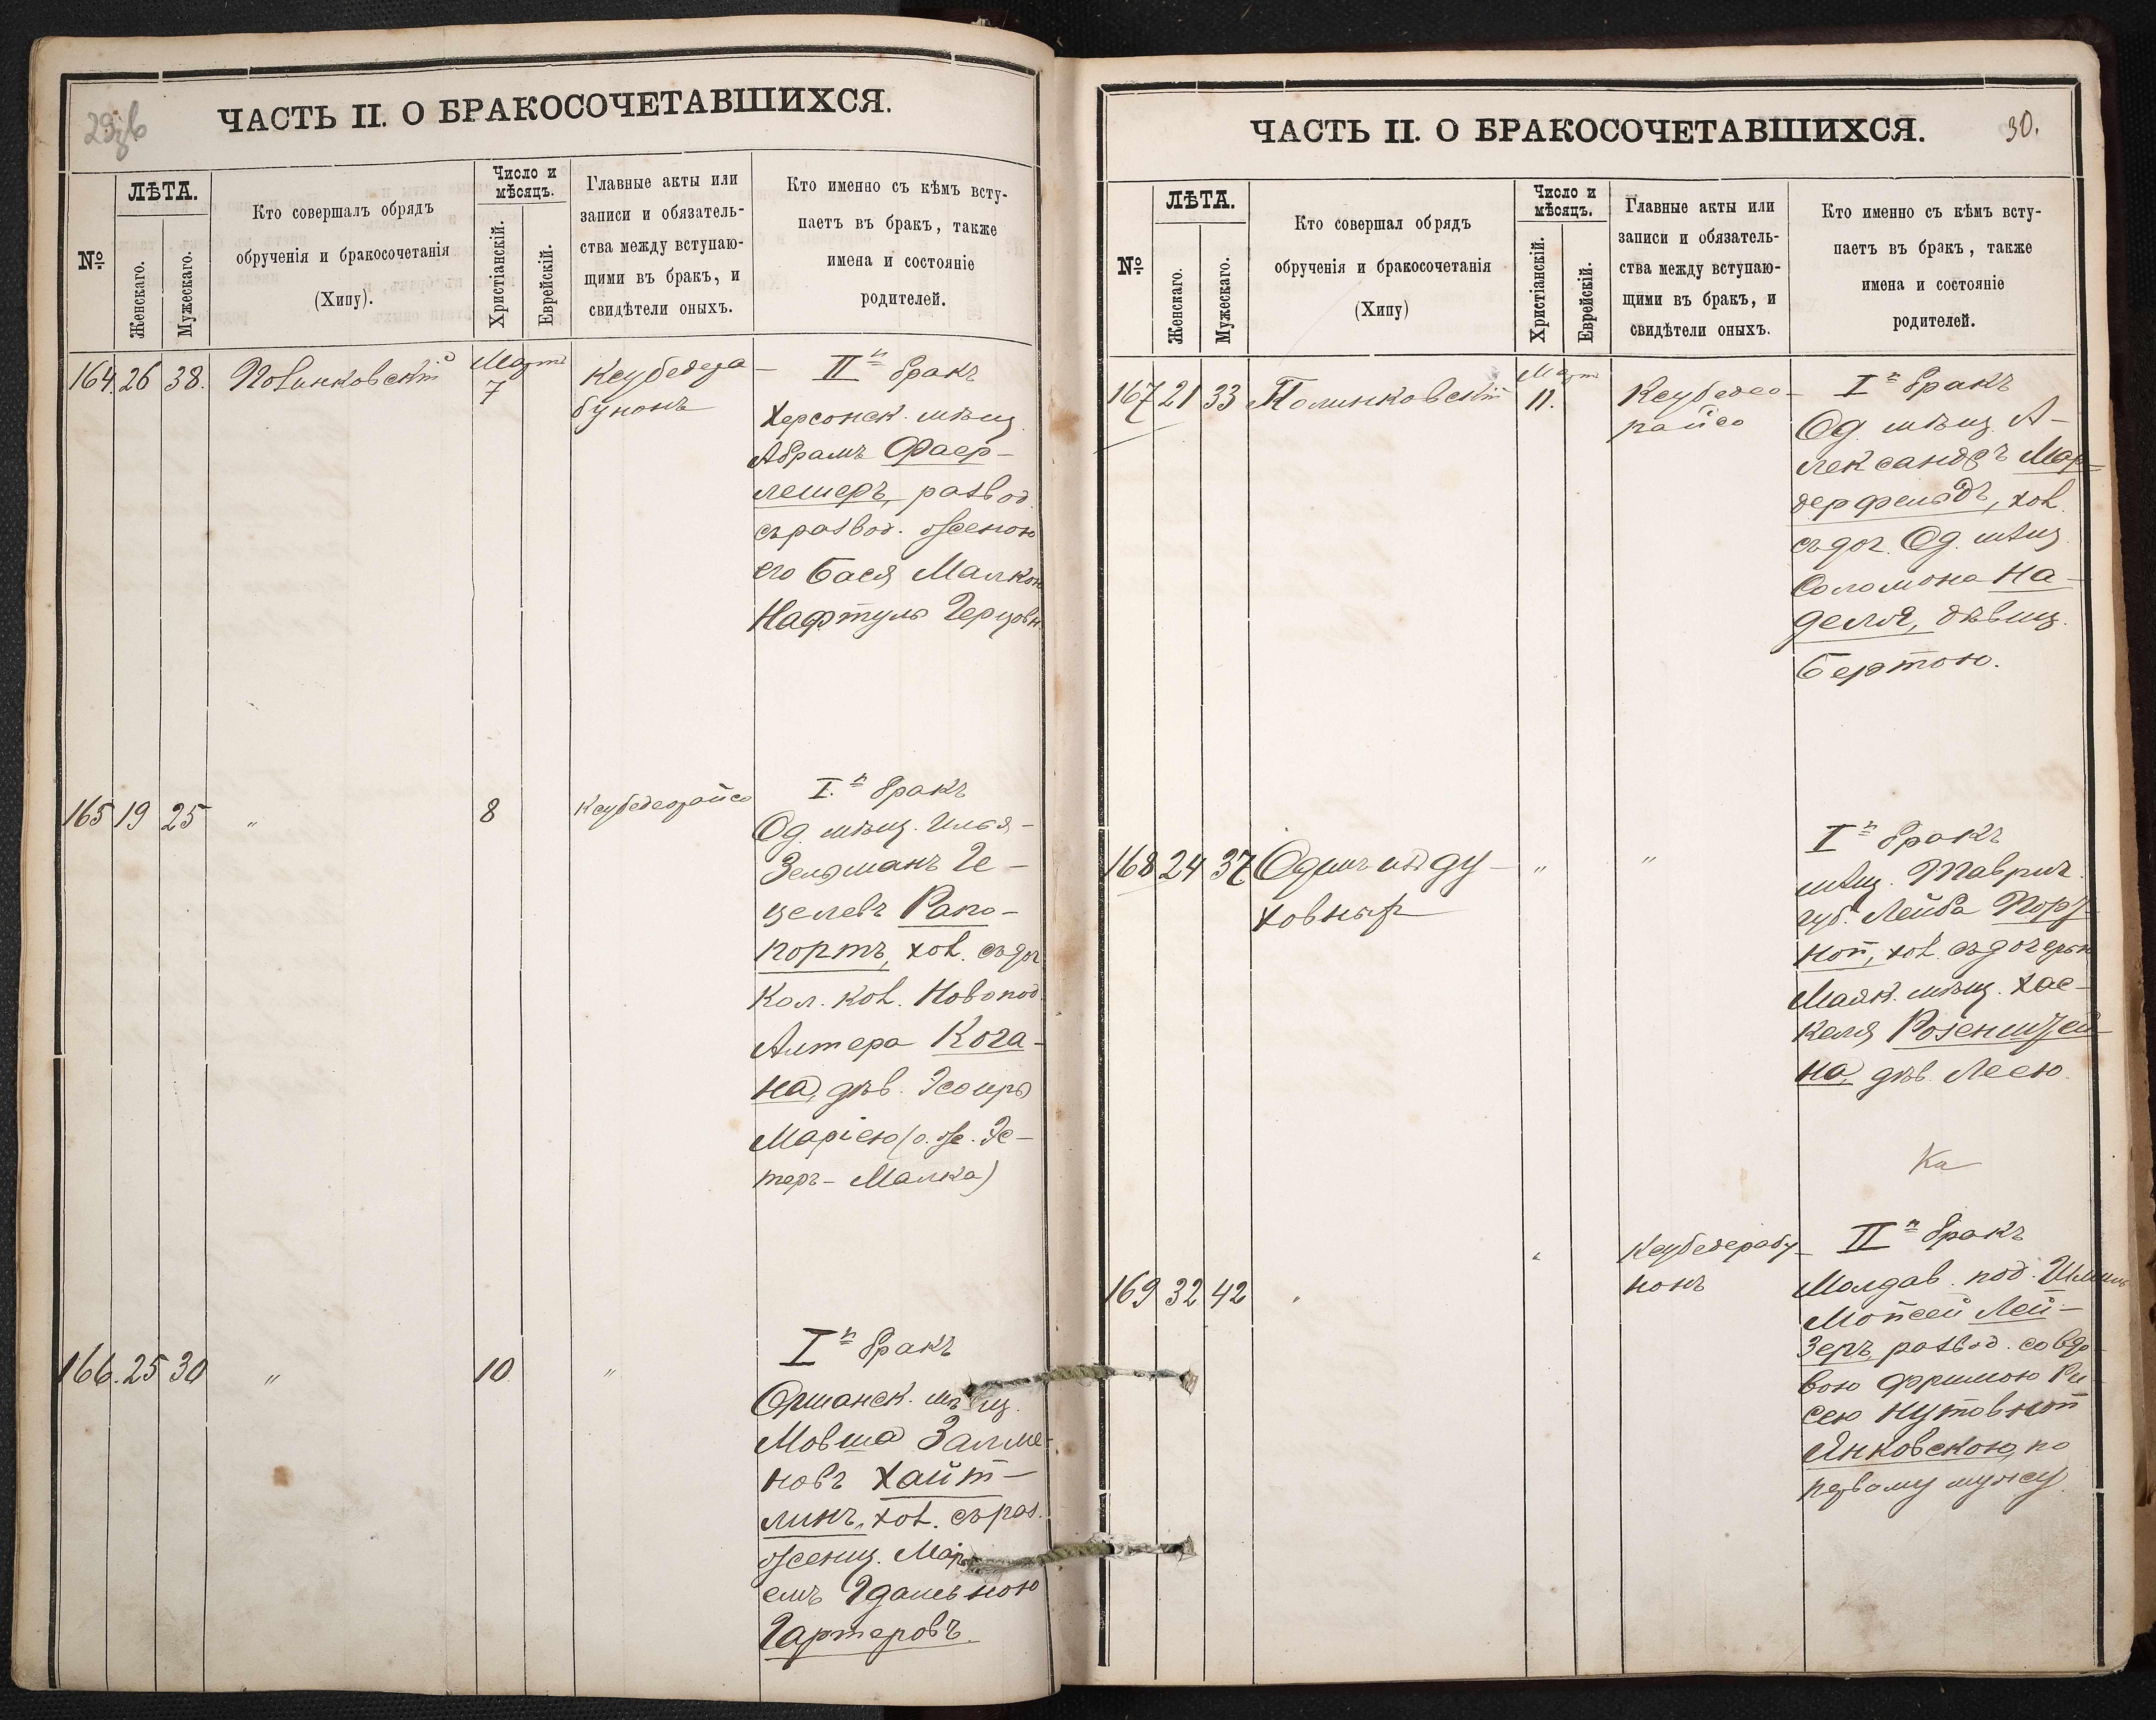 ЧАСТЬ II. О БРАКОСОЧЕТАВШИХСЯ.
№
ЛѢТА.
Женскаго.
Мужескаго.
Кто совершалъ обрядъ
обрученія и бракосочетанія
(Хипу).
Число и
мѣсяцъ.
Христіанскій.
Еврейскій.
Главные акты или
записи и обязатель-
ства между вступаю-
щими въ бракъ, и
свидѣтели оныхъ.
Кто именно съ кѣмъ всту-
паетъ въ бракъ, также
имена и состояніе
родителей.
164. 26 38. Полинковскій
Март
7
Ксубедера-
бунонъ
II й бракъ
Херсонск. мѣщ.
Абрамъ Фаер-
лешеръ, развод.
съ развод. женою
его Бася Малкою
Нафтуль Герцовн.
165 19 25 "
8
Ксубедеорайсо
I. й бракъ
Од. мѣщ. Илья-
Зельманъ Ге-
целевъ Рапо-
портъ, хол. съ доч.
Кол. кол. Новопол.
Алтера Кога-
на, дѣв.
Маріею (о. же. Эс-
теръ-Малка)
166. 25 30 "
10
"
I й бракъ
Оршанск. мѣщ.
Мовша Залма-
новъ Хайт-
линъ, хол. съ раз.
женщ. Марі-
емъ Гдальною
Гартеровъ.
ЧАСТЬ II. О БРАКОСОЧЕТАВШИХСЯ.
30.
№
ЛѢТА.
Женскаго.
Мужескаго.
Кто совершал обрядъ
обрученія и бракосочетанія
(Хипу)
Число и
мѣсяцъ.
Христіанскій.
Еврейскій.
Главные акты или
записи и обязатель-
ства между вступаю-
щими въ бракъ, и
свидѣтели оныхъ.
Кто именно съ кѣмъ всту-
паетъ въ бракъ, также
имена и состояніе
родителей.
167 21 33 Полинковскій
Март
11.
Ксубедео-
райсо
I й бракъ
Од. мѣщ. А-
лександръ Мар-
дерфельдъ, хол.
съ доч. Од. мѣщ.
Соломона На-
деля, дѣвиц.
Бертою.
168 24 37 Одинъ изъ ду-
ховных
"
"
I й бракъ
мѣщ. Таврич.
губ. Лейба
ной, хол. съ дочерью
Маяк. мѣщ. Хас-
келя Розенштей-
на, дѣв. Леею.
169 32 42 "
"
Ксубедерабу-
нонъ
II й бракъ
Молдав. под.
Мойсей Лей-
зеръ, развод. со вдо-
вою Фримою Ри-
сею Нутовной
Янковскою, по
первому мужу.